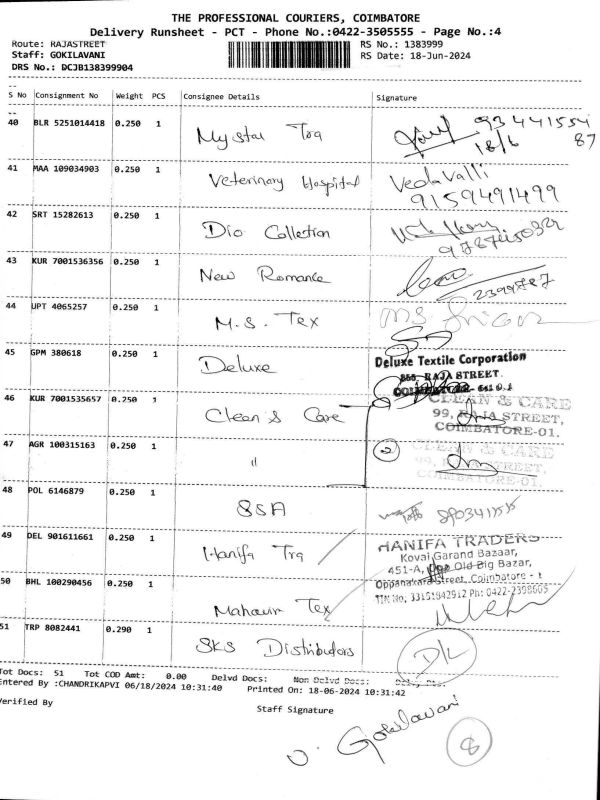 THE PROFESSIONAL COURIERS, COIMBATORE
Delivery Runsheet - PCT - Phone No.:0422-3505555 - Page No.:4
Route: RAJASTREET RS No.: 1383999
Staff: GOKILAVANI RS Date: 18-Jun-2024
DRS No.: DCJB138399904
S No Consignment No Weight PCS Consignee Details Signature
40 BLR 5251014418 0.250 1 My Star Tra 18/6
41 MAA 109034903 0.250 1 Veterinary Hospital Veda Valli
9159491499
42 SRT 15282613 0.250 1 Dio Collection
43 KUR 7001536356 0.250 1 New Romance
44 UPT 4065257 0.250 1 M.S. Tex
45 GPM 380618 0.250 1 Deluxe Deluxe Textile Corporation
RAJA STREET.
46 KUR 7001535657 0.250 1 Clean & Care CLEAN & CARE
99, RAJA STREET,
COIMBATORE-01.
47 AGR 100315163 0.250 1 " 2 CLEAN & CARE
99, RAJA STREET,
COIMBATORE-01.
48 POL 6146879 0.250 1 SSA
49 DEL 901611661 0.250 1 Hanifa Tra HANIFA TRADERS
Kovai Garand Bazaar,
451-A, Old Big Bazar,
Oppanakara Street, Coimbatore - 1
50 BHL 100290456 0.250 1 Mahavir Tex
51 TRP 8082441 0.290 1 SKS Distributors D/L
Tot Docs: 51 Tot COD Amt: 0.00 Delvd Docs: Non Delvd Docs:
Entered By :CHANDRIKAPVI 06/18/2024 10:31:40 Printed On: 18-06-2024 10:31:42
Verified By Staff Signature
V. Gokilavani
8